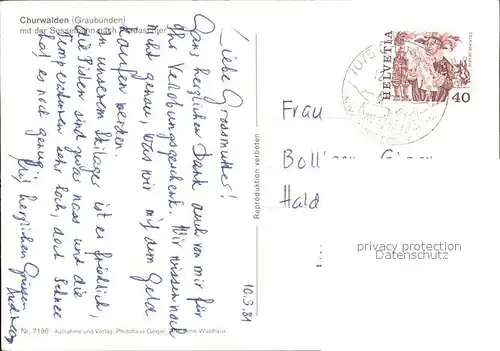 Churwalden (Graubünden)
mit der Sesselbahn nach
Liebe Grossmutter!
Ganz herzlichen Dank auch von mir für
Ihr Verlobungsgeschenk. Wir wissen noch
nicht genau, was wir mit dem Geld
kaufen werden.
In unserem Skilager ist es friedlich,
die Pisten sind zwar nass und die
Temperaturen sehr hoch, doch Schnee
hat es noch genug.
Mit herzlichen Grüssen
Andreas
10.3.81
Nr. 7196 Aufnahme und Verlag: Photohaus Geiger, Waldhaus
Reproduktion verboten
7075
HELVETIA
40
Frau
Hald
privacy protection
Datenschutz